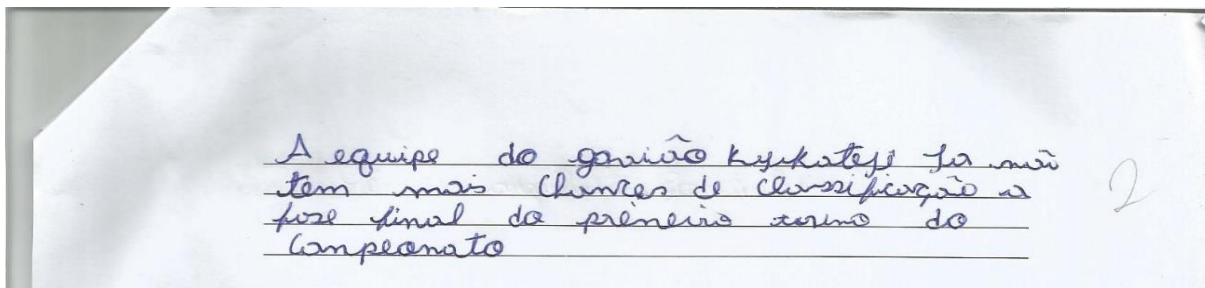 A equipe do gavião kyikateji Ja não
tem mais Chances de classificação a
fase final do primeiro torino do
Campeonato
2